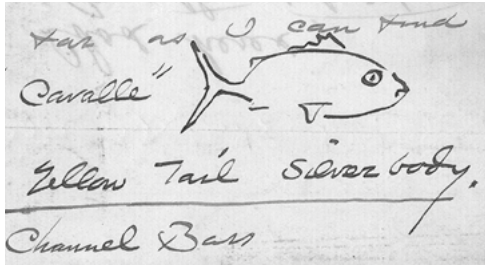 far as I can find
Cavalle"
Yellow Tail Silver body.
Channel Bass